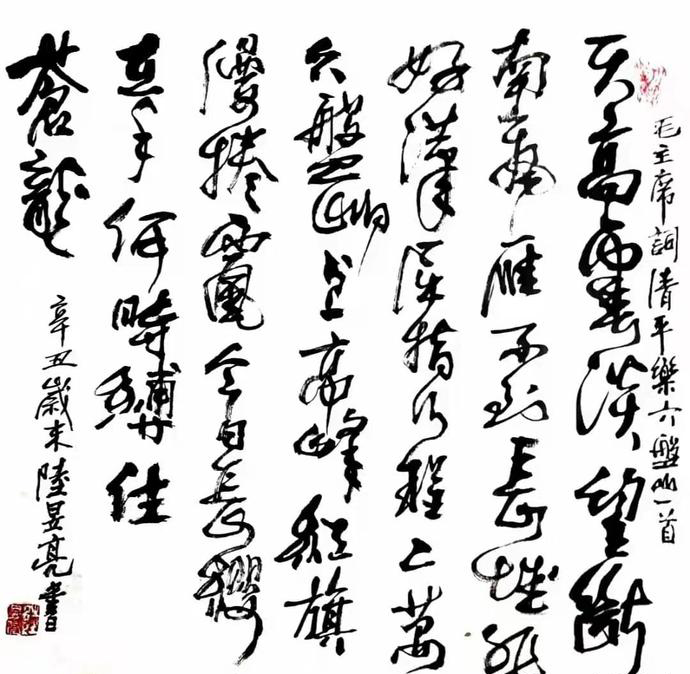 毛主席詞清平樂六盤山一首
天高雲淡望斷
南飛雁不到長城非
好漢屈指行程二萬
六盤山上高峰紅旗
漫捲西風今日長纓
在手何時縛住
蒼龍
辛丑歲末陸昱亮書